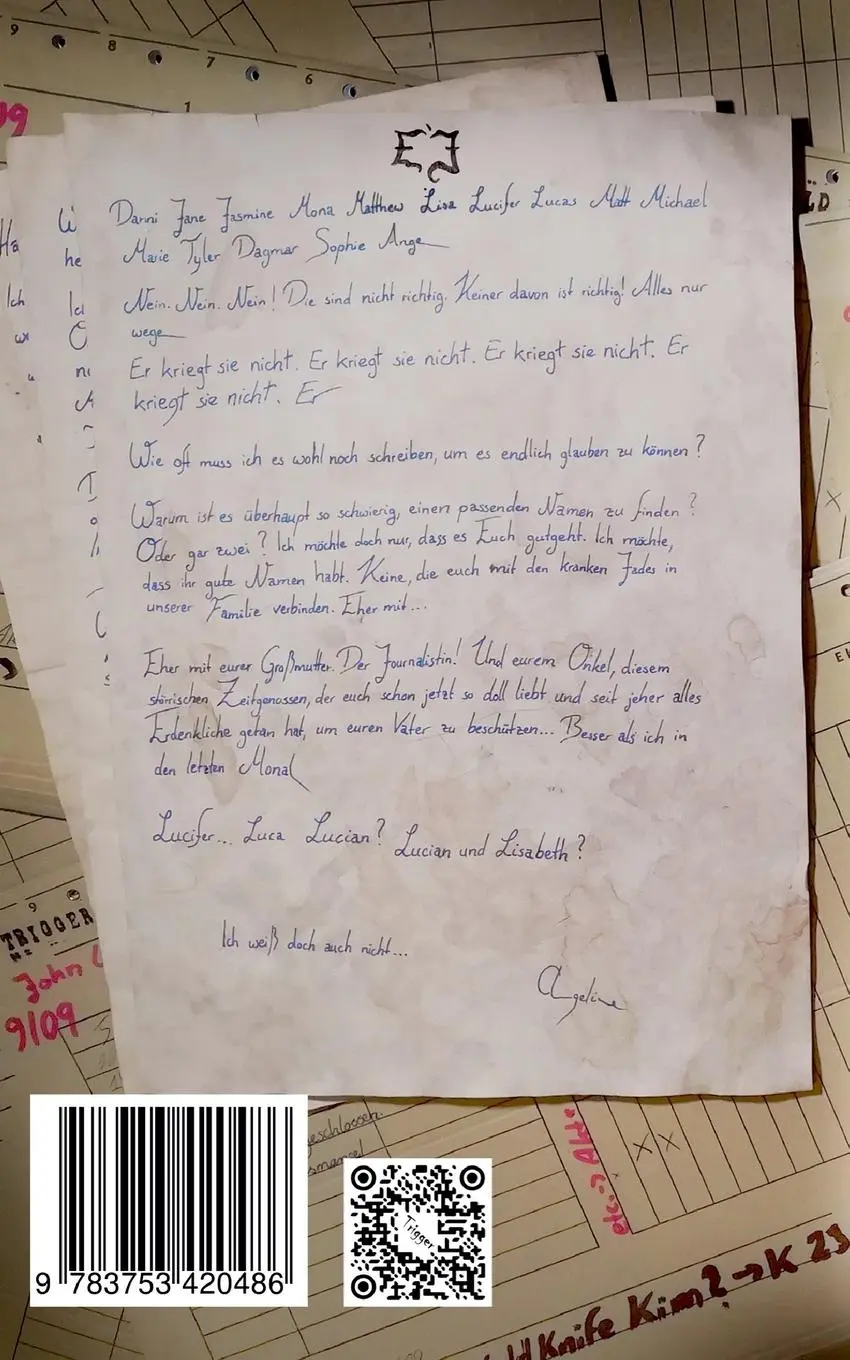 9 8 7 6
1
09
Danni Jane Jasmine Mona Matthew Lisa Lucifer Lucas Matt Michael
Marie Tyler Dagmar Sophie Ange
Nein. Nein. Nein! Die sind nicht richtig. Keiner davon ist richtig! Alles nur
wege
Er kriegt sie nicht. Er kriegt sie nicht. Er kriegt sie nicht. Er
kriegt sie nicht. Er
Wie oft muss ich es wohl noch schreiben, um es endlich glauben zu können?
Warum ist es überhaupt so schwierig, einen passenden Namen zu finden?
Oder gar zwei? Ich möchte doch nur, dass es Euch gutgeht. Ich möchte,
dass ihr gute Namen habt. Keine, die euch mit den kranken Jades in
unserer Familie verbinden. Eher mit...
Eher mit eurer Großmutter. Der Journalistin! Und eurem Onkel, diesem
störrischen Zeitgenossen, der euch schon jetzt so doll liebt und seit jeher alles
Erdenkliche getan hat, um euren Vater zu beschützen... Besser als ich in
den letzten Mona
Lucifer... Luca Lucian? Lucian und Lisabeth?
Ich weiß doch auch nicht...
Angeline
Ha
Ich
he
9
TRIGGER
John
9/09
geschlossen.
smangel
etc. -> Akte
XX
Knife Kim? -> K 23
Trigger
9 783753 420486